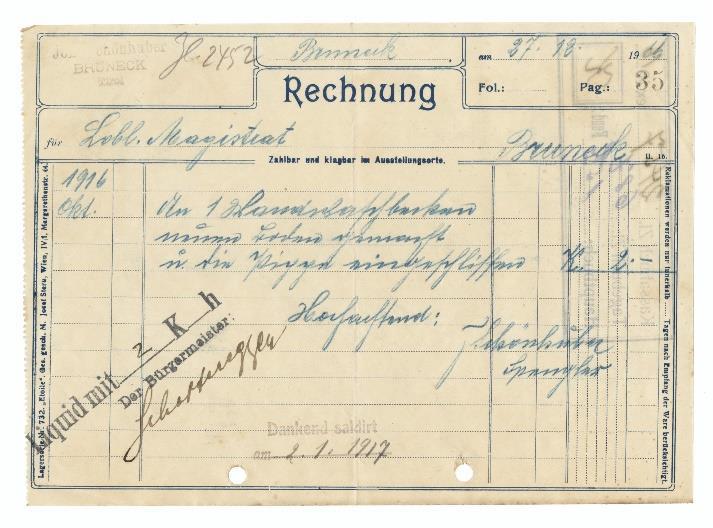 Schönhuber
BRUNECK
Tirol
2452
Bruneck
am 27. 12. 19
Rechnung
Fol.: Pag.: 35
für Löbl. Magistrat Bruneck
Zahlbar und klagbar im Ausstellungsorte.
1916
Okt. An 1 Wandwaschbecken
neuen Boden gemacht
u. die Pippe eingeschliffen K. 2.-
Hochachtend:
J. Schönhuber
Spengler
Liquid mit 2 K h
Der Bürgermeister:
Dankend saldirt
am 2. 1. 1917
Lagersorte Nº 732. „Etoile“. Ges. gesch. M. Josef Stern, Wien, IV/1. Margarethenstr. 44.
Reklamationen werden nur innerhalb Tagen nach Empfang der Ware berücksichtigt.